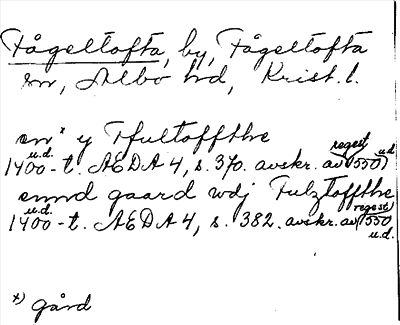 Fågeltofta, by, Fågeltofta
sn, Albo hd, Krist. l.
en x) y Ffultoffthe
1400 u.d. -t. AEDA 4, s. 370. avskr. av regest (1550) u.d.
ennd gaard wdj Fulztoffthe
1400 u.d. -t. AEDA 4, s. 382. avskr. av regest (1550 u.d.
x) gård